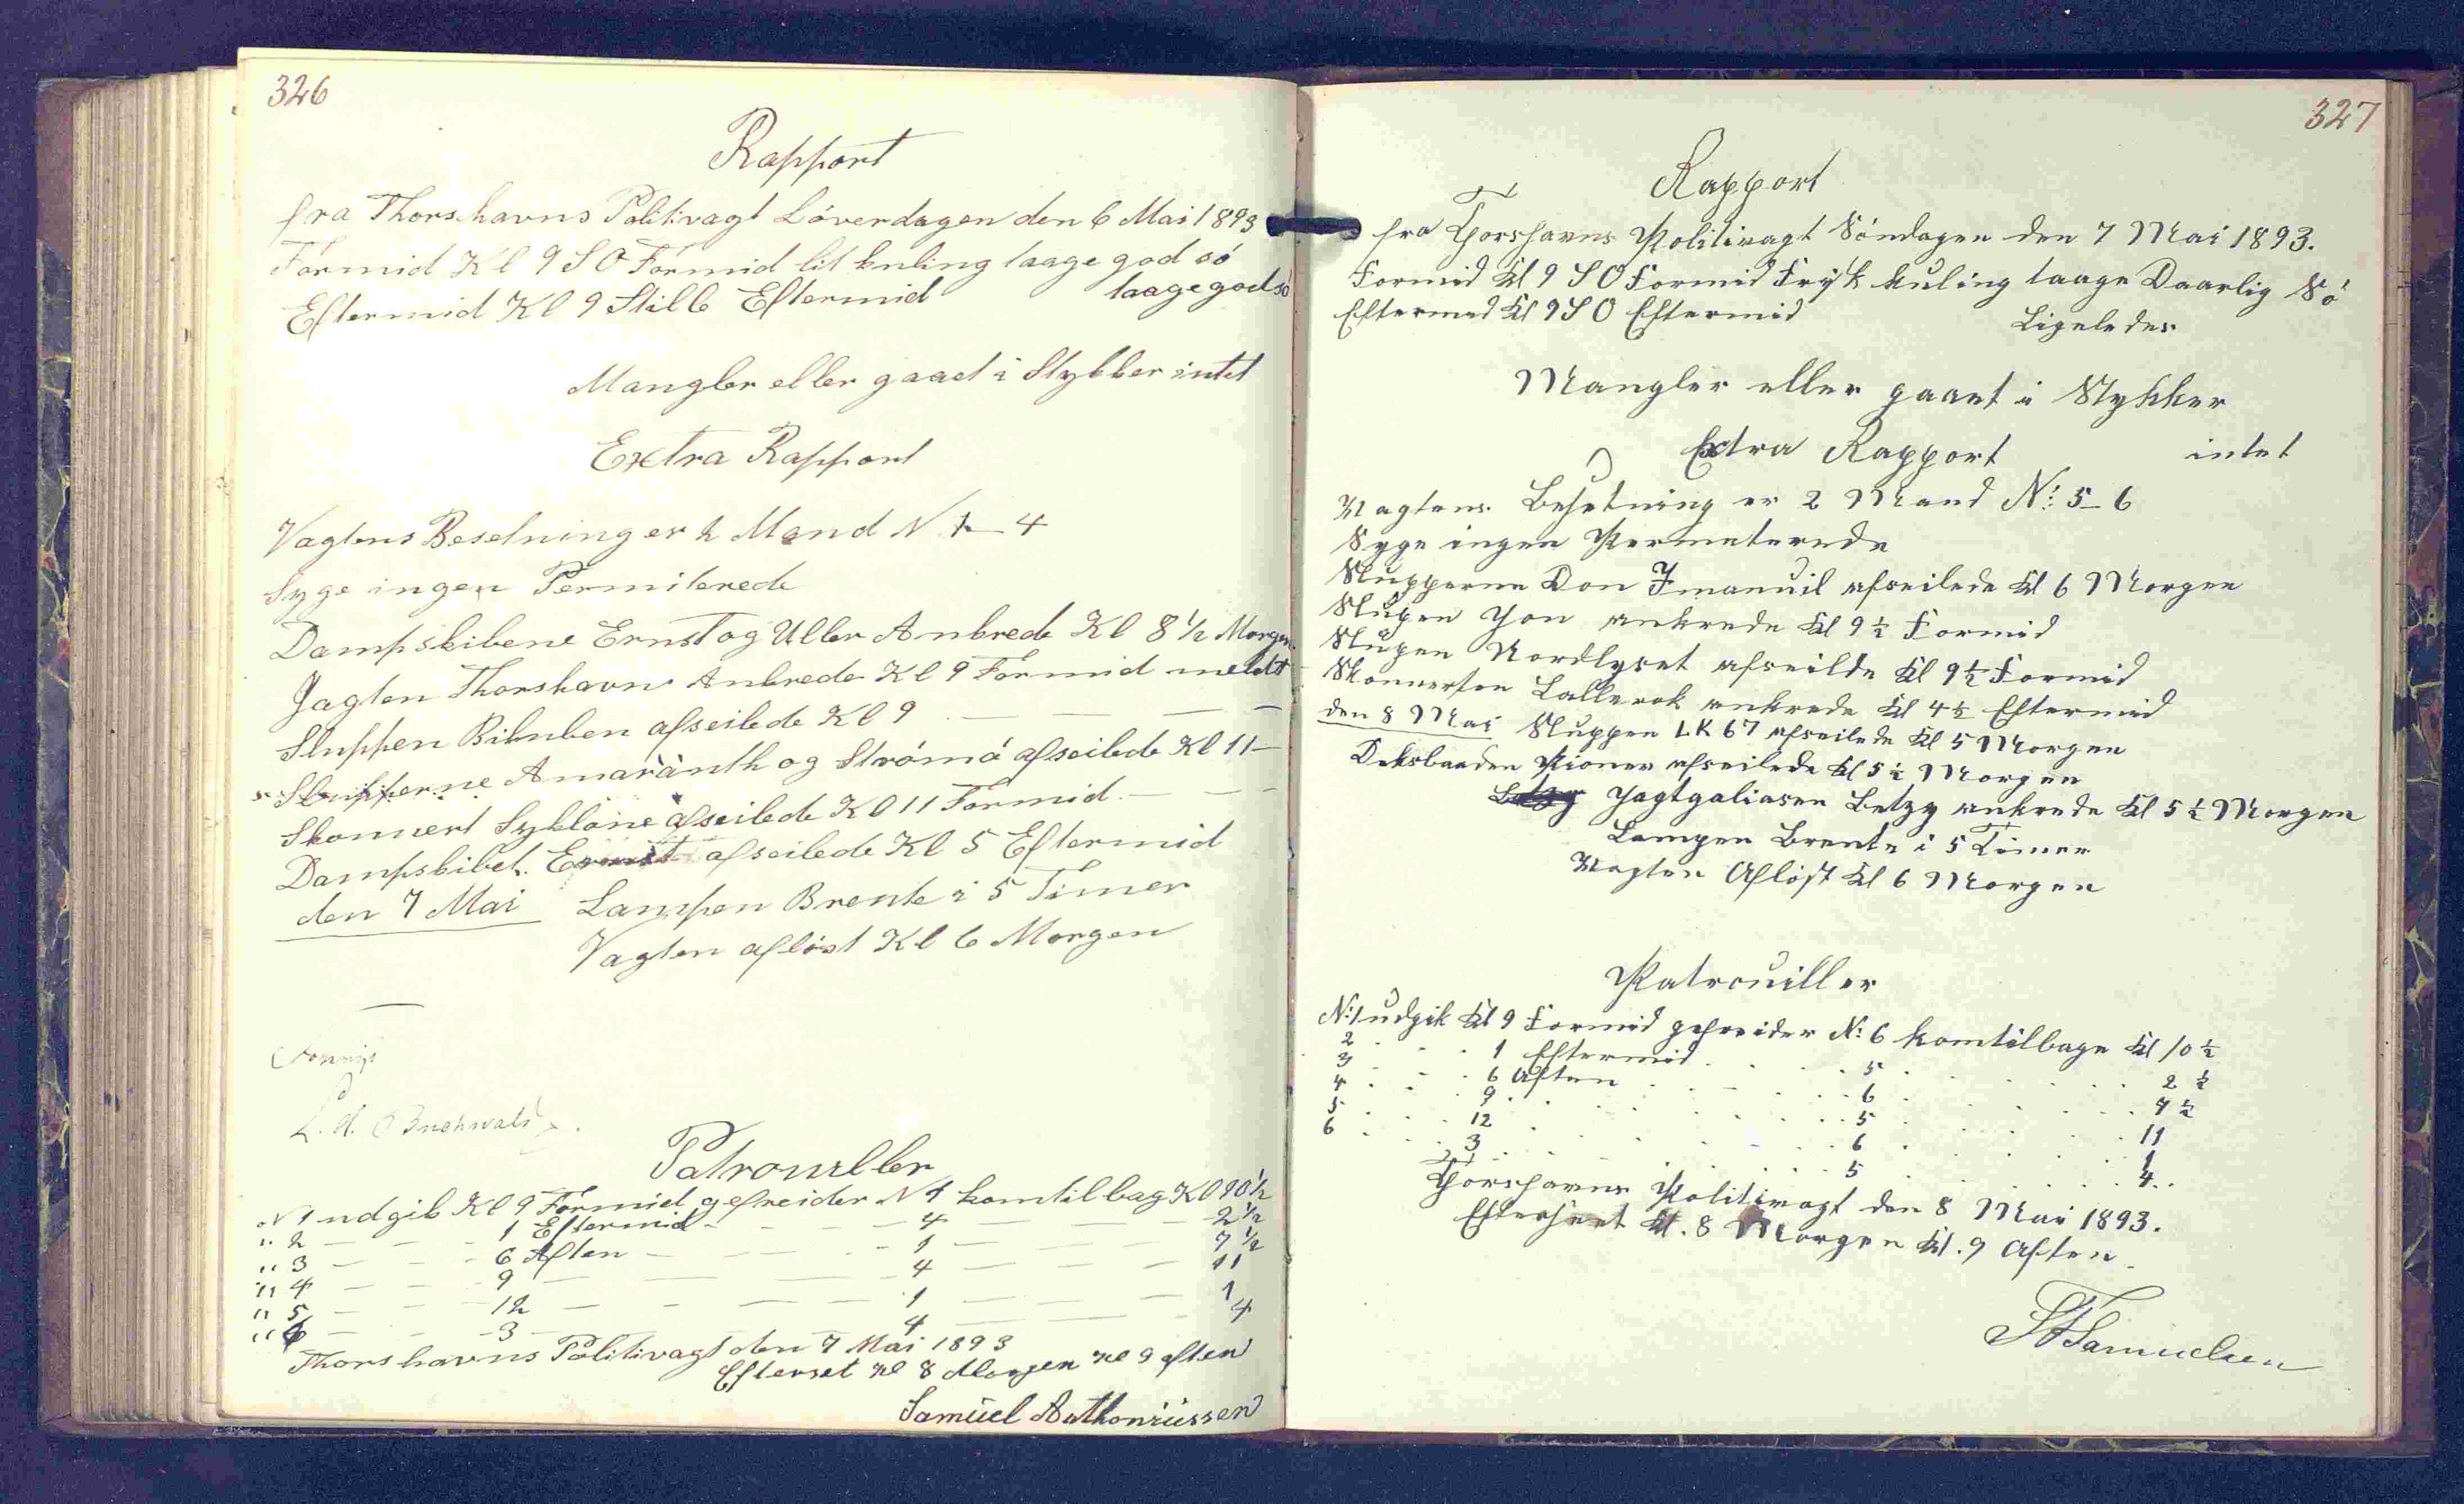 326
Rapport
fra Thorshavns Politivagt Löverdagen den 6 Mai 1893
Formid Kl 9 S O Formid lit kuling taage god sö
Eftermid Kl 9 Stille Eftermid taage god sö
Mangler eller gaaet i Stykker intet
Extra Rapport
Vagtens Besetning er 2 Mand N 1 — 4
Syge ingen Permiterede
Dampskibene Ernst og Uller Ankrede Kl 8 ½ Morgen
Jagten Thorshavn Ankrede Kl 9 Formid meldt
Sluppen Bikuben afseilede Kl 9 — — —
Slupperne Amaranth og Strömö afseilede Kl 11 —
Skonnert Syklone afseilede Kl 11 Formid — — —
Dampskibet Ernst afseilede Kl 5 Eftermid
den 7 Mai Lampen Brente i 5 Timer
Vagten aflöst Kl 6 Morgen
Buchwald
Patrouiller
N 1 udgik Kl 9 Formid gefreider N 1 komtilbag Kl 10 ½
" 2 — — - 1 Eftermid - — — 4 — — — 2 ½
" 3 — — - 6 Aften — — - 1 — — — 7 ½
" 4 — — - 9 — — — 4 — — — 11
" 5 — — - 12 — — — 1 — — — 1
" 6 — — - 3 — — — 4 — — — 4
Thorshavns Politivagt den 7 Mai 1893
Efterset Kl 8 Morgen Kl 9 Aften
Samúel Anthoniússen
327
Rapport
fra Thorshavns Politivagt Söndagen den 7 Mai 1893.
Formid Kl 9 S O Formid Frÿsk kuling taage Daarlig Sö
Eftermed Kl 9 S O Eftermid Ligeledes
Mangler eller gaaet i Stykker
Extra Rapport intet
Vagtens Besetning er 2 Mand N: 5 - 6
Syge ingen Permeterede
Slupperne Don Imanuil afseilede Kl 6 Morgen
Slupen Jon ankrede Kl 9 ½ Formid
Slupen Nordlyset afseilde Kl 9 ½ Formid
Skonnerten Lallerok ankrede Kl 4 ½ Eftermid
den 8 Mai Sluppen LK 67 afseilede Kl 5 Morgen
Deksbaaden Pioner afseilede Kl 5 ½ Morgen
Jagtgaliasen Betzy ankrede Kl 5 ½ Morgen
Lampen Brente i 5 Timer
Vagten Aflöst Kl 6 Morgen
Patrouiller
N: 1 udgik Kl 9 Formid gefreider N: 6 komtilbage Kl 10 ½
2 . . . 1 Eftermid . . . 5 . . . 2 ½
3 . . . 6 Aften . . . 6 . . . 7 ½
4 . . . 9 . . . 5 . . . 11
5 . . . 12 . . . 6 . . . 1
6 . . . 3 . . . 5 . . . 4 . .
Thorshavns Politivagt den 8 Mai 1893.
Efterseet Kl. 8 Morgen Kl. 9 Aften.
Samuelsen